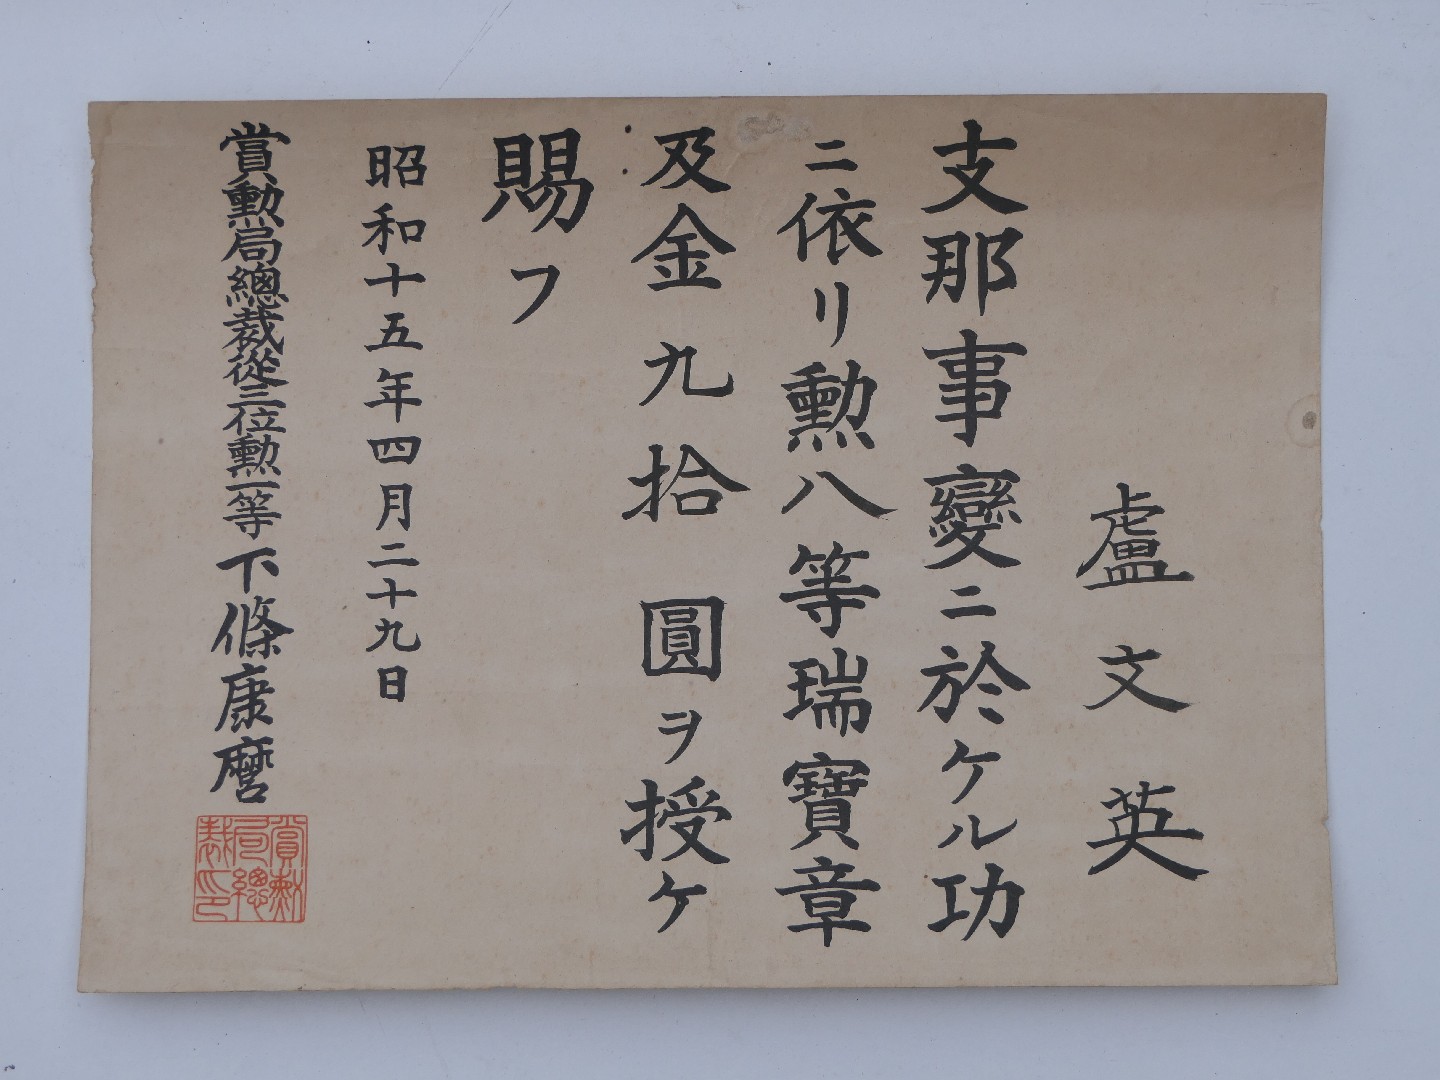 盧文英
支那事變ニ於ケル功
ニ依リ勲八等瑞寶章
及金九拾圓ヲ授ケ
賜フ
昭和十五年四月二十九日
賞勲局總裁從三位勲一等下條康麿
賞勲局總裁印